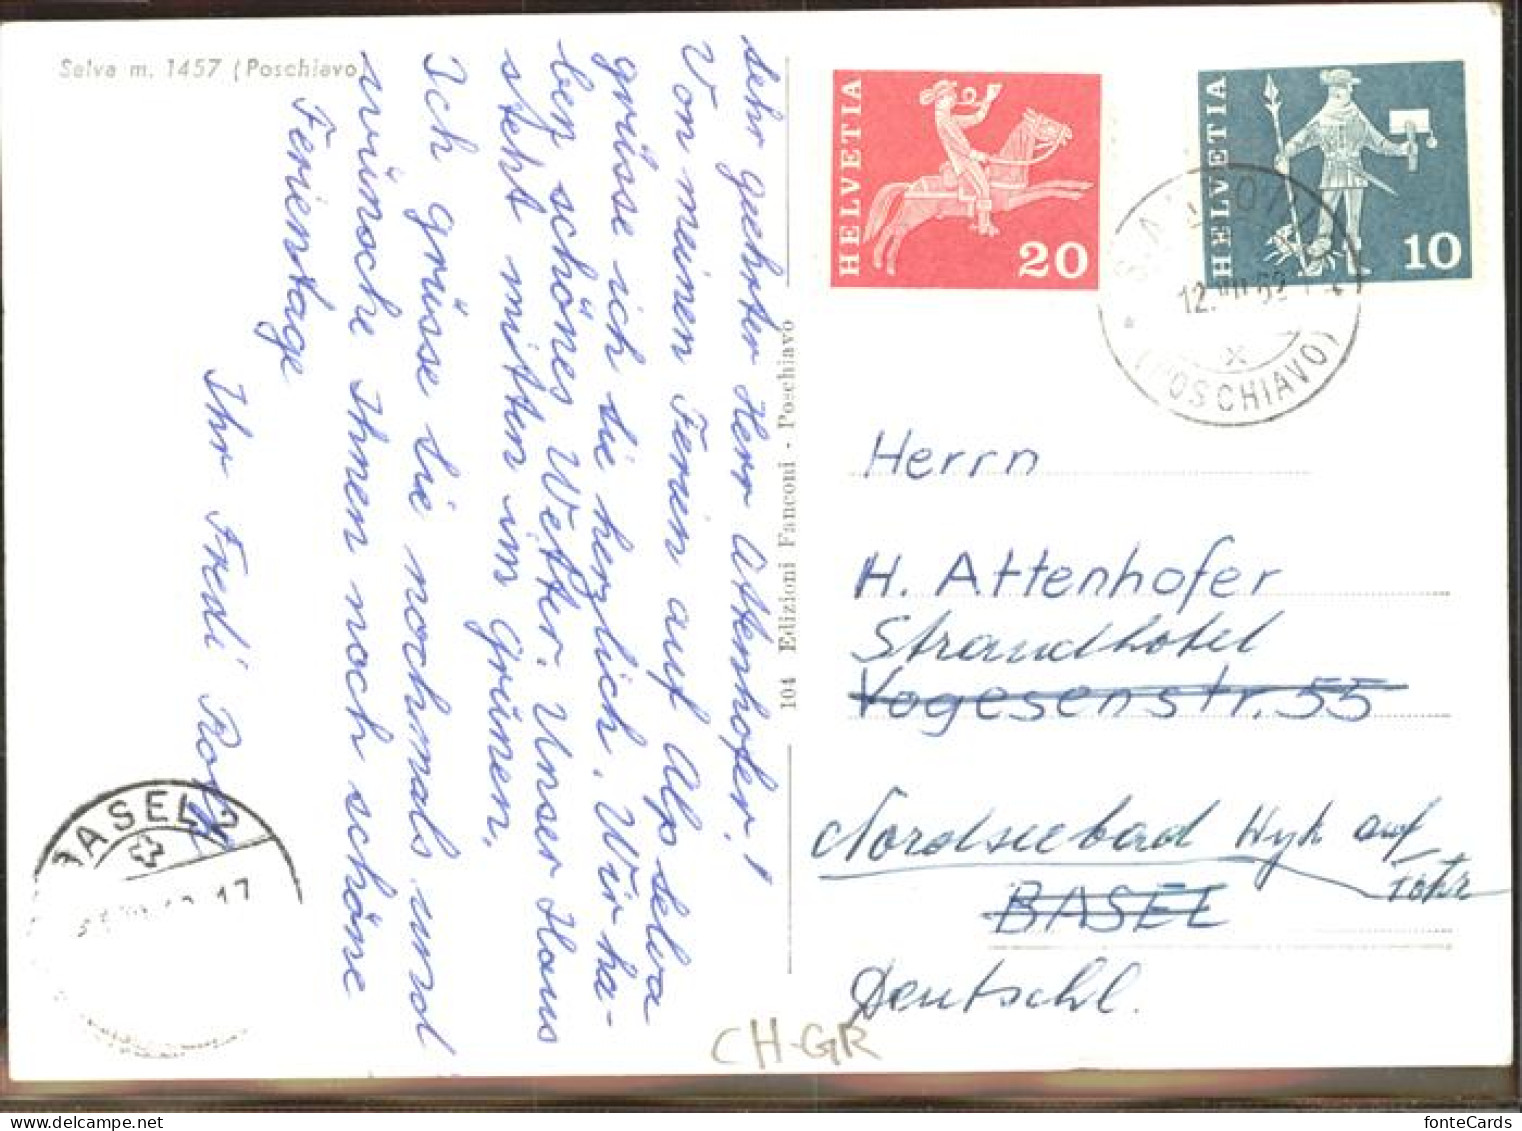 Selva m. 1457 (Poschiavo)
Sehr geehrter Herr Attenhofer!
Von meinen Ferien auf Alp Selva
grüsse ich Sie herzlich. Wir ha-
ben schönes Wetter. Unser Haus
steht mitten im Grünen.
Ich grüsse Sie nochmals und
wünsche Ihnen noch schöne
Ferientage
Ihr Fredi Rolf
104 Edizioni Fanconi - Poschiavo
HELVETIA
20
HELVETIA
10
12.
(POSCHIAVO)
Herrn
H. Attenhofer
Strandhotel
Vogesenstr. 55
Nordseebad Wyk auf
Föhr
BASEL
Deutschl.
BASEL 2
17
CH-GR
fonteCards